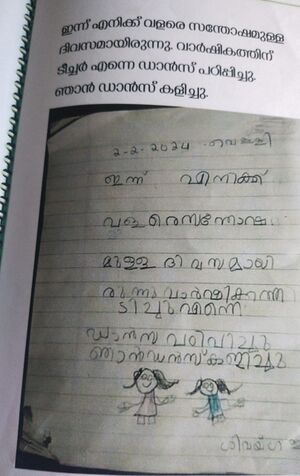 ഇന്ന് എനിക്ക് വളരെ സന്തോഷമുള്ള
ദിവസമായിരുന്നു. വാർഷികത്തിന്
ടീച്ചർ എന്നെ ഡാൻസ് പഠിപ്പിച്ചു.
ഞാൻ ഡാൻസ് കളിച്ചു.
2-2-2024 വെള്ളി
ഇന്ന് എനിക്ക്
വള രെസന്തോഷ
മുള്ള ദിവസമായി
രുന്നു വാർഷികത്തി
ടിച്ചുഎന്നെ
ഡാനസ പഠിപിചു
ഞാൻഡൻസ്കളിച്ചു